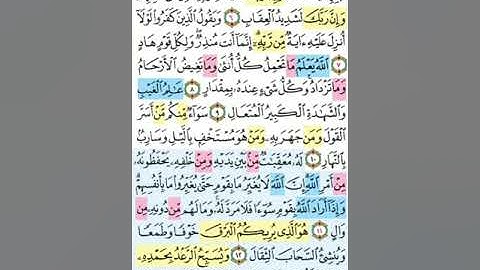 وَإِنَّ رَبَّكَ لَشَدِيدُ ٱلۡعِقَابِ ٦ وَيَقُولُ ٱلَّذِينَ كَفَرُواْ لَوۡلَآ
أُنزِلَ عَلَيۡهِ ءَايَةٞ مِّن رَّبِّهِۦٓۗ إِنَّمَآ أَنتَ مُنذِرٞۖ وَلِكُلِّ قَوۡمٍ هَادٍ
٧ ٱللَّهُ يَعۡلَمُ مَا تَحۡمِلُ كُلُّ أُنثَىٰ وَمَا تَغِيضُ ٱلۡأَرۡحَامُ
وَمَا تَزۡدَادُۖ وَكُلُّ شَيۡءٍ عِندَهُۥ بِمِقۡدَارٍ ٨ عَٰلِمُ ٱلۡغَيۡبِ
وَٱلشَّهَٰدَةِ ٱلۡكَبِيرُ ٱلۡمُتَعَالِ ٩ سَوَآءٞ مِّنكُم مَّنۡ أَسَرَّ
ٱلۡقَوۡلَ وَمَن جَهَرَ بِهِۦ وَمَنۡ هُوَ مُسۡتَخۡفِۭ بِٱلَّيۡلِ وَسَارِبُۢ
بِٱلنَّهَارِ ١٠ لَهُۥ مُعَقِّبَٰتٞ مِّنۢ بَيۡنِ يَدَيۡهِ وَمِنۡ خَلۡفِهِۦ يَحۡفَظُونَهُۥ
مِنۡ أَمۡرِ ٱللَّهِۗ إِنَّ ٱللَّهَ لَا يُغَيِّرُ مَا بِقَوۡمٍ حَتَّىٰ يُغَيِّرُواْ مَا بِأَنفُسِهِمۡۗ
وَإِذَآ أَرَادَ ٱللَّهُ بِقَوۡمٖ سُوٓءٗا فَلَا مَرَدَّ لَهُۥۚ وَمَا لَهُم مِّن دُونِهِۦ مِن
وَالٍ ١١ هُوَ ٱلَّذِي يُرِيكُمُ ٱلۡبَرۡقَ خَوۡفٗا وَطَمَعٗا
وَيُنشِئُ ٱلسَّحَابَ ٱلثِّقَالَ ١٢ وَيُسَبِّحُ ٱلرَّعۡدُ بِحَمۡدِهِۦ